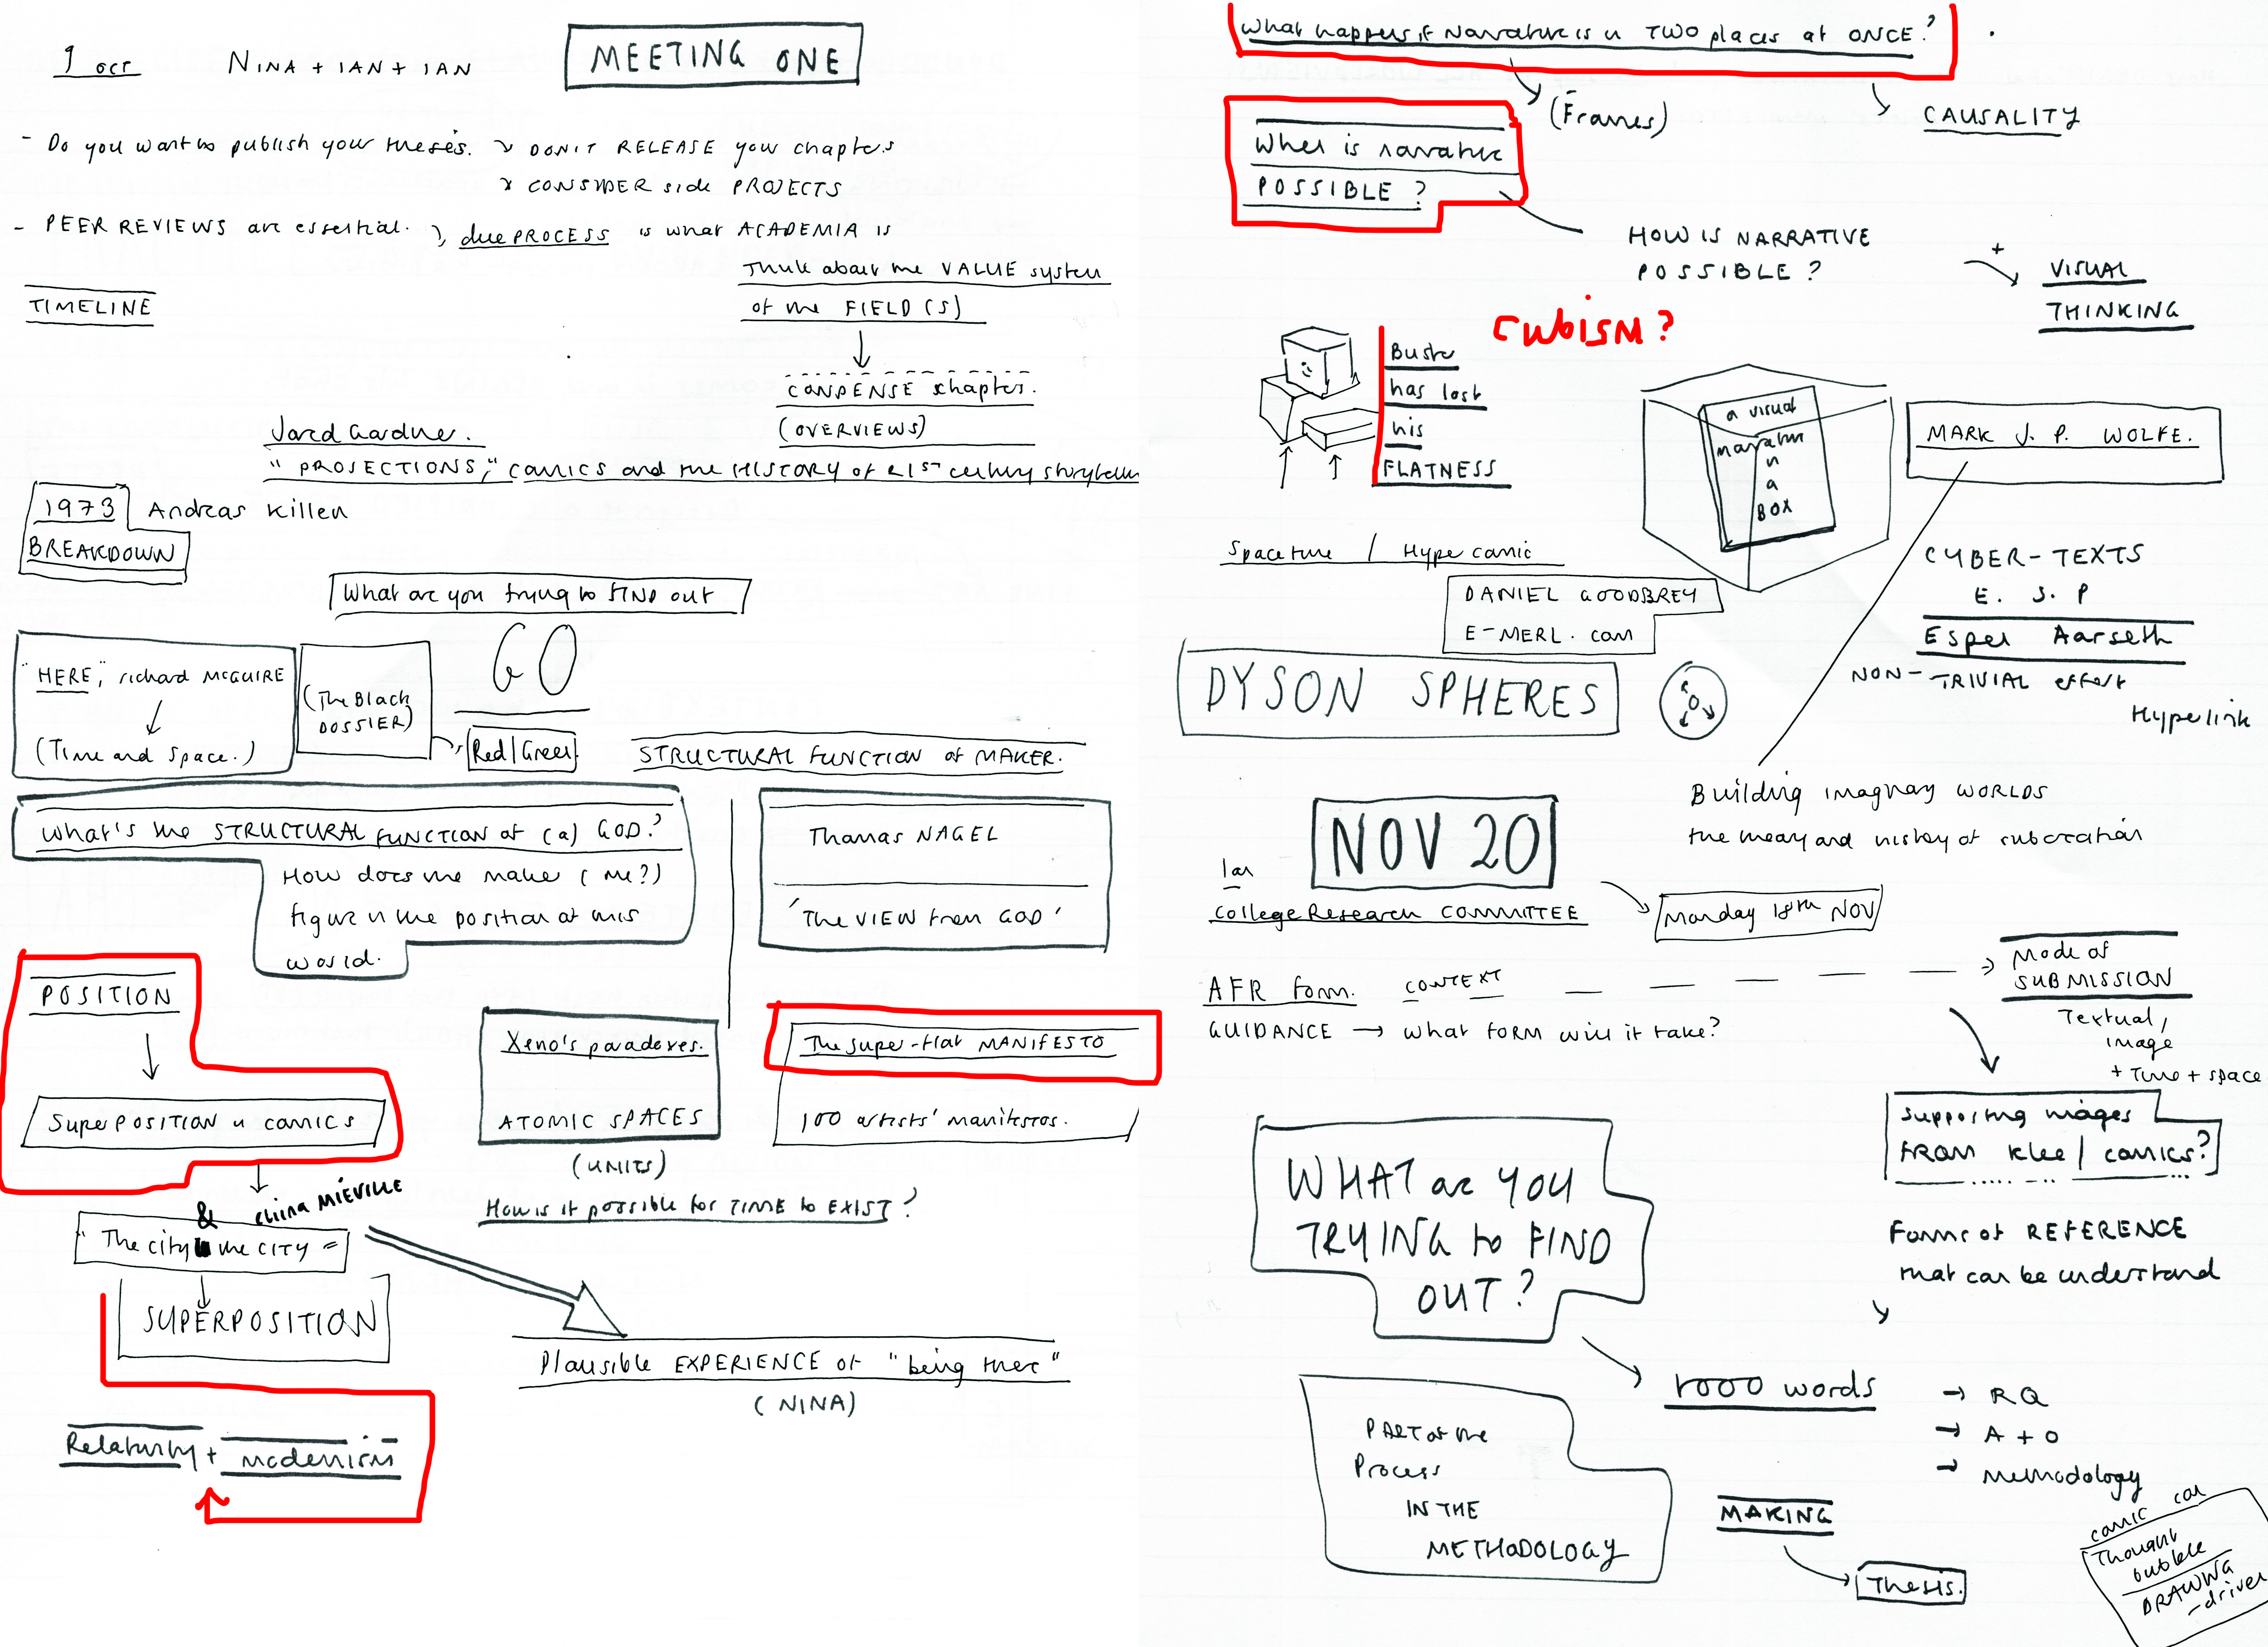 1 OCT
NINA + IAN + IAN
MEETING ONE
- Do you want to publish your thesis. ↘ DON'T RELEASE your chapters
↘ CONSIDER side PROJECTS
- PEER REVIEWS are essential. ↘ due PROCESS is what ACADEMIA is
Think about the VALUE system
of the FIELD(S)
TIMELINE
CONDENSE chapters.
(OVERVIEWS)
Jared Gardner.
"PROJECTIONS," comics and the HISTORY of 21st century storytelling
1973 Andreas Killen
BREAKDOWN
What are you trying to FIND out
GO
"HERE", richard McGUIRE
(Time and space.)
(The Black
DOSSIER)
Red/Green
STRUCTURAL FUNCTION of MAKER.
What's the STRUCTURAL FUNCTION of (a) GOD?
How does the maker (me?)
figure in the position of this
world.
Thomas NAGEL
'The VIEW from GOD'
POSITION
SuperPOSITION in comics
Xeno's paradoxes.
ATOMIC SPACES
(UNITS)
The super-flat MANIFESTO
100 artists' manifestos.
How is it possible for TIME to EXIST?
& China MIÉVILLE
"The city the CITY =
SUPERPOSITION
Plausible EXPERIENCE of "being there"
(NINA)
Relativity + modernism
What happens if Narrative is in TWO places at ONCE?
(Frames)
CAUSALITY
When is narrative
POSSIBLE?
HOW IS NARRATIVE
POSSIBLE?
+
VISUAL
THINKING
CUBISM?
Buster
has lost
his
FLATNESS
a visual
narrative
in
a
BOX
MARK J. P. WOLFE.
Spacetime / Hypercomic
DANIEL GOODBREY
E-MERL.com
CYBER-TEXTS
E. S. P
Espen Aarseth
NON-TRIVIAL effort
Hyperlink
DYSON SPHERES
Building imaginary WORLDS
the theory and history of subcreation
NOV 20
Ian
College Research COMMITTEE
Monday 18th NOV
AFR form. CONTEXT
Mode of
SUBMISSION
GUIDANCE → what FORM will it take?
Textual,
image
+ Time + space
Supporting images
FROM Klee / comics?
WHAT are YOU
TRYING to FIND
OUT?
Forms of REFERENCE
that can be understand
1000 words
→ RQ
→ A + O
→ Methodology
PART of the
Process
IN THE
METHODOLOGY
MAKING
Thesis.
comic con
Thought
bubble
DRAWING
-driven